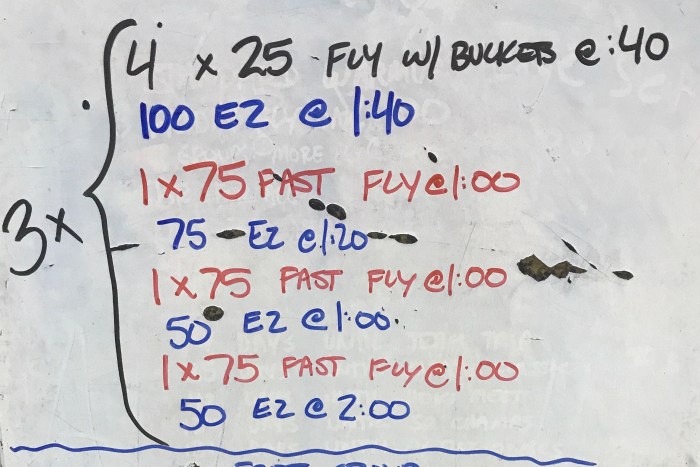 3x
4 x 25 FLY W/ BUCKETS @ :40
100 EZ @ 1:40
1 x 75 FAST FLY @ 1:00
75 EZ @ 1:20
1 x 75 FAST FLY @ 1:00
50 EZ @ 1:00
1 x 75 FAST FLY @ 1:00
50 EZ @ 2:00